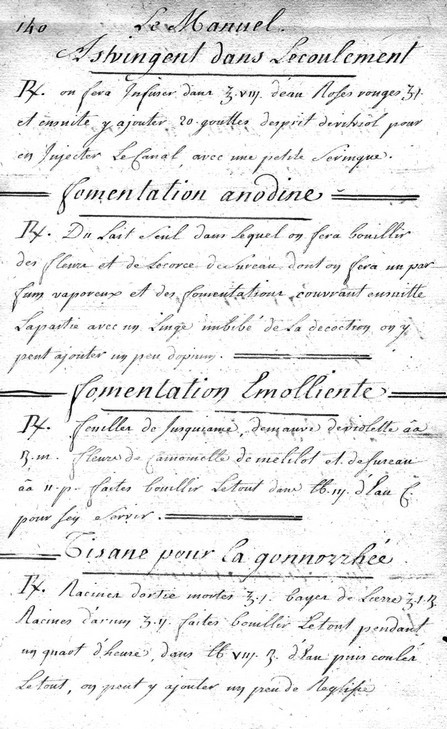 140 Le Manuel.
Astringent dans Lecoulement
℞. on fera Infuser dans ℥ viij. d'eau Roses rouges ʒ j.
et ensuite y ajouter 20 gouttes desprit devitriol pour
en Injecter Le Canal avec une petite Seringue.
fomentation anodine
℞. Du Lait Seul dans Lequel on fera bouillir
des fleurs et de Lecorce desureau dont on fera un par
fum vaporeux et des fomentations couvrant ensuitte
Lapartie avec un Linge imbibé de La decoction on y
peut ajouter un peu dopium.
fomentation Emolliente
℞. feuilles de Jusquiame, demauve deviolette āa
m. fleurs de Camomille de melilot et desureau
āa p. faites bouillir Letout dans ℔ ij. d'Eau C.
pour sen Servir.
Tisane pour La gonnorrhée
℞. Racines dortie mortes ℥ j. bayes de Lierre
Racines d'arum ʒ ij. faites bouillir Letout pendant
un quart d'heure, dans ℔ viij. d'Eau puis coulés
Letout, on peut y ajouter un peu de Reglisse